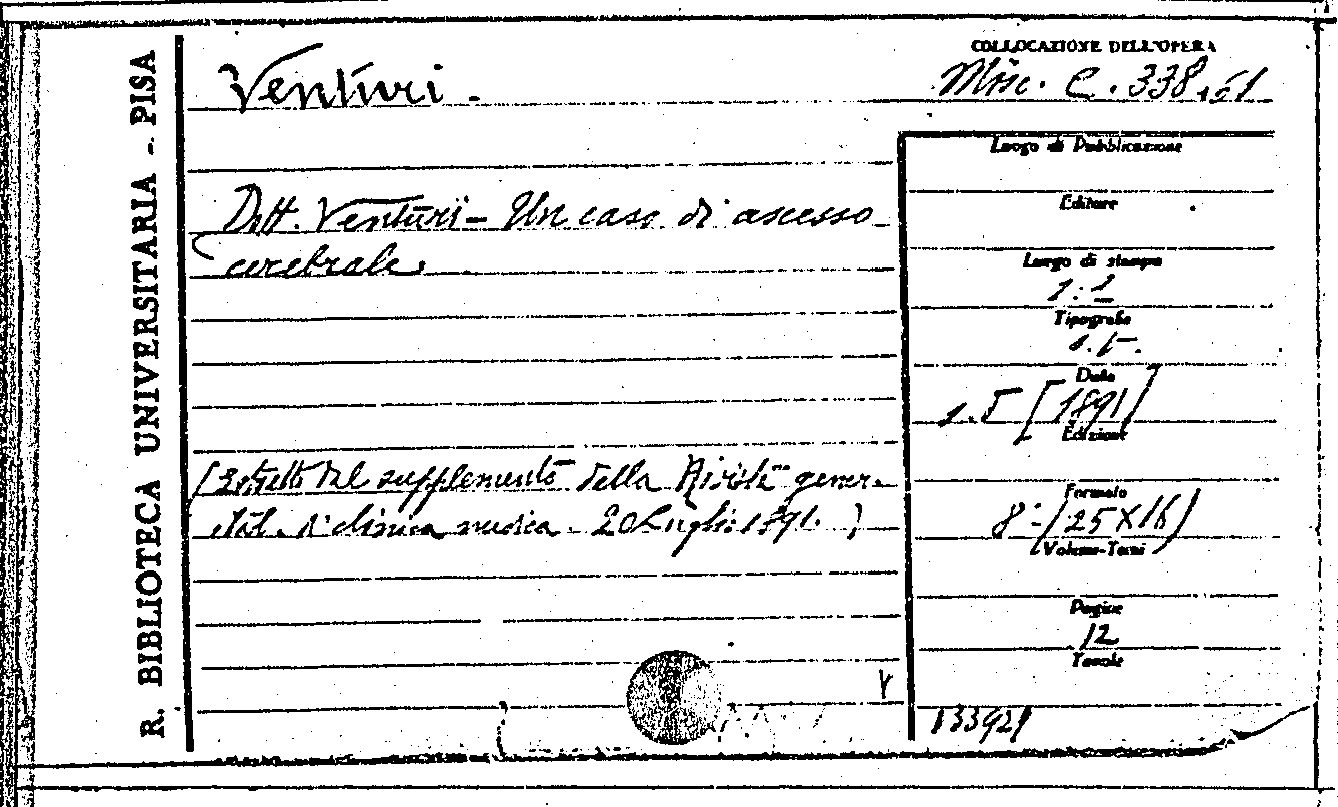 R. BIBLIOTECA UNIVERSITARIA - PISA
Venturi.
COLLOCAZIONE DELL'OPERA
Misc. C. 338, 51
Dott. Venturi - Un caso di ascesso
cerebrale.
(Estratto dal supplemento della Rivista gener.
ital. di clinica medica. 20 Luglio 1891.)
Luogo di Pubblicazione
Editore
Luogo di stampa
s. l.
Tipografia
s. t.
Data
[1891]
Edizione
Formato
8° (25X16)
Volume-Tomi
Pagine
12
Tavole
133921